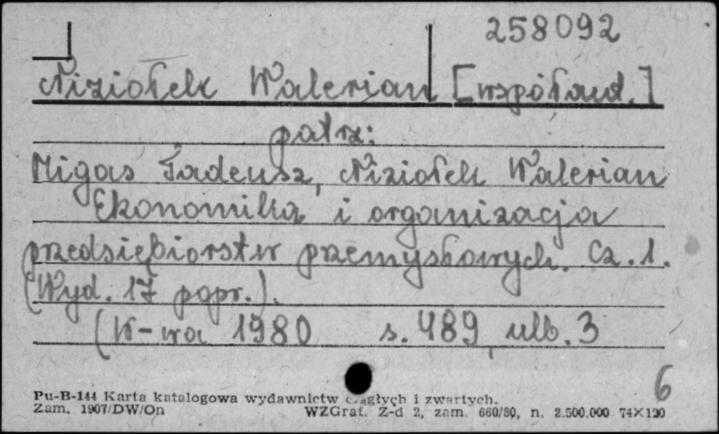 258092
Niziołek Walerian [współaut.]
patrz:
Migas Tadeusz, Niziołek Walerian
Ekonomika i organizacja
przedsiębiorstw przemysłowych. Cz. 1.
(Wyd. 17 popr.).
(W-wa 1980 s. 489, nlb. 3
6
Pu-B-144 Karta katalogowa wydawnictw ciągłych i zwartych.
Zam. 1907/DW/On WZGraf. Z-d 2, zam. 660/80, n. 2.500.000 74×120